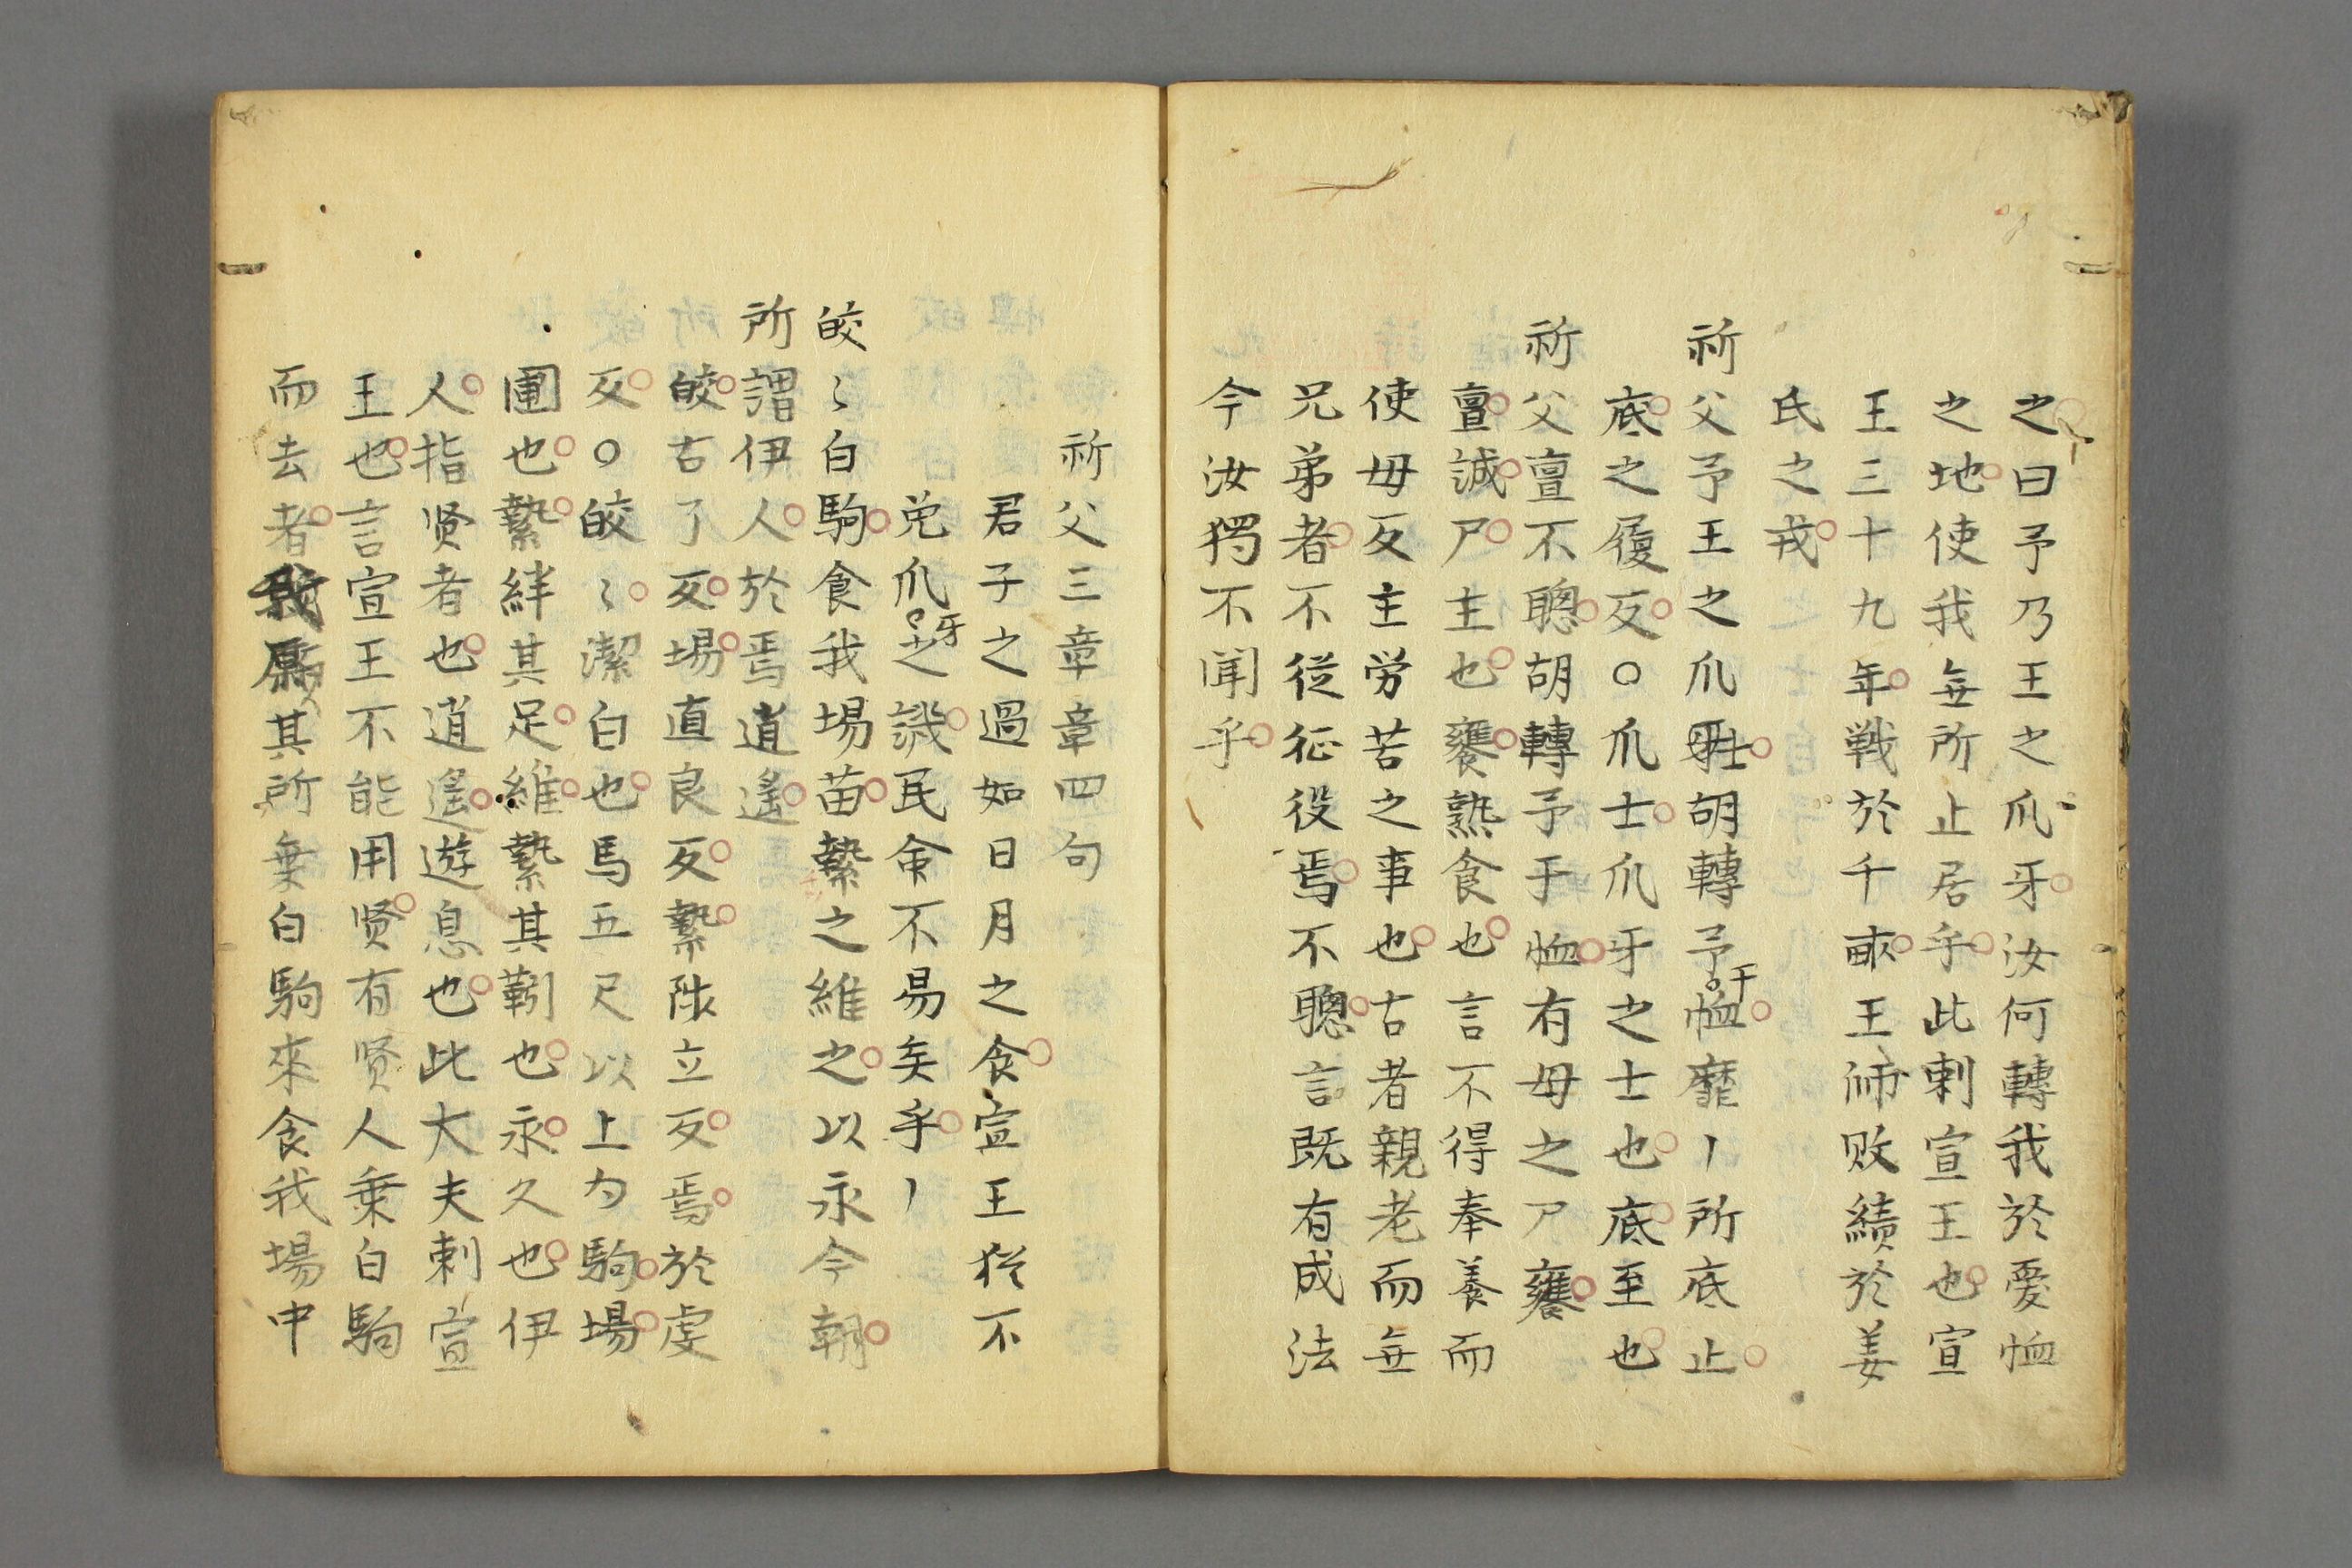 之曰予乃王之爪牙汝何轉我於憂恤
之地使我無所止居乎此刺宣王也宣
王三十九年戦於千畝王師敗績於姜
氏之戎
祈父予王之爪士胡轉予于恤靡丨所底止
底之履反○爪士爪牙之士也底至也
祈父亶不聰胡轉予于恤有母之尸饔
亶誠尸主也饔熟食也言不得奉養而
使母反主労苦之事也古者親老而無
兄弟者不従征役焉不聰言既有成法
今汝獨不聞乎
祈父三章章四句
君子之過如日月之食宣王猶不
免爪牙之譏民食不易矣乎丨
皎〻白駒食我場苗縶之維之以永今朝
所謂伊人於焉逍遙
皎古了反場直良反縶陟立反焉於虔
反○皎〻潔白也馬五尺以上為駒場
圃也縶絆其足維縶其靷也永久也伊
人指賢者也逍遙遊息也此大夫刺宣
王也言宣王不能用賢有賢人乗白駒
而去者其所乗白駒來食我場中